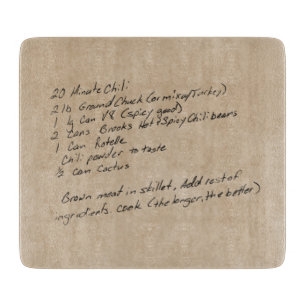 20 Minute Chili
2 lb Ground Chuck (or mix w/Turkey)
1 lg Can V8 (spicy good)
2 Cans Brooks Hot & Spicy Chili beans
1 Can Rotelle
Chili powder to taste
½ can Cactus
Brown meat in skillet, Add rest of
ingredients cook (the longer, the better)